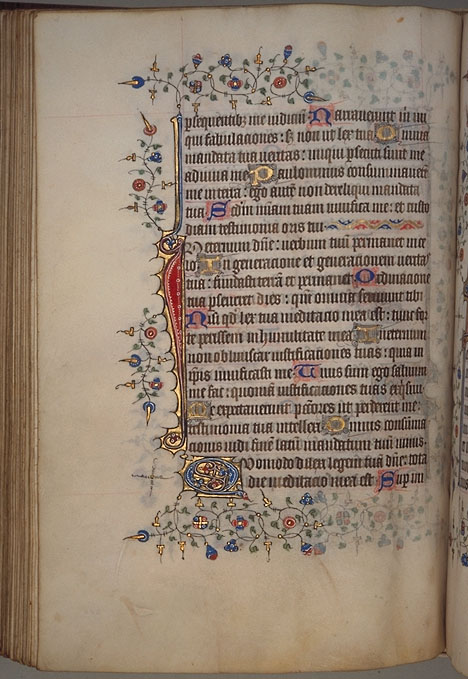 psequentibꝫ me iudiciū Narraverunt m̄ ini
qui fabulaciones : sꝫ non ut lex tua Omnia
mandata tua veritas : iniqui psecuti sunt me
adiuva me Paulominus consummaverūt
me in terra : ego autē non dereliqui mandata
tua Scdm miām tuam vivifica me : et custo
diam testimonia oris tui
In eternum dn̄e : verbum tuū permanet in ce
lo In generacione et generacionem verita
tua : fundasti terrā et permanet Ordinacione
tua pseverat dies : qm̄ omnia serviunt tibi
Nisi qd lex tua meditacio mea est : tunc for
te periissem in humilitate mea In eternum
non obliviscar iustificaciones tuas : quia in
ipis vivificasti me Tuus sum ego salvum
me fac : quoniam iustificaciones tuas exqsivi
Me expectaverunt pctōres ut perderent me
testimonia tua intellexi Omnis consūma
cionis vidi finē latū mandatum tuū nimis
Quomodo dilexi legem tuā dn̄e : tota
die meditacio mea est Sup ini